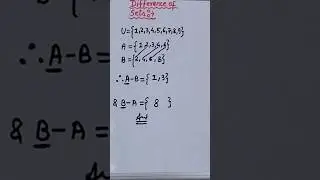 Difference of
Sets:-
U={1,2,3,4,5,6,7,8,9}
A = {1,2,3,4,6}
B = {2,4,6,8}
∴A-B={1,3}
& B-A={ 8 }
Ans